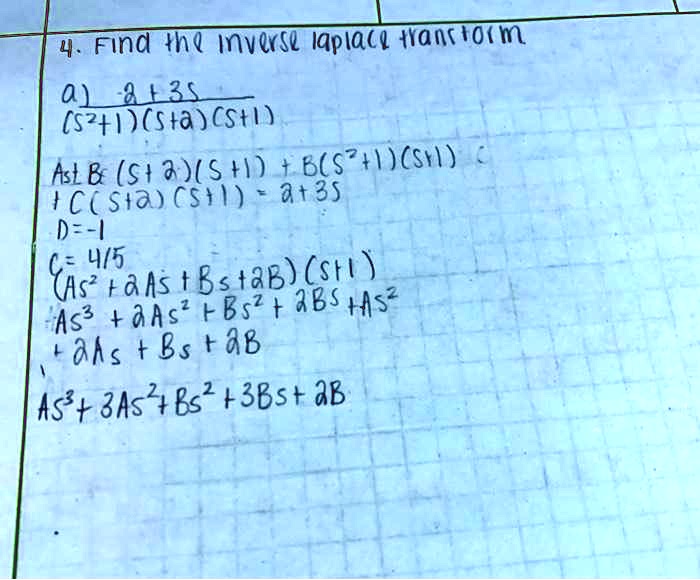 4. Find the inverse laplace transform
a) 2 + 3s
(s²+1)(s+2)(s+1)
As+B (s+2)(s+1) + B(s²+1)(s+1)
+ C(s+2)(s+1) = 2+3s
D=-1
C= 4/5
(As² + 2As + Bs+2B)(s+1)
As³ + 2As² + Bs² + 2Bs +As²
+ 2As + Bs + 2B
As³+ 3As²+Bs² +3Bs+ 2B